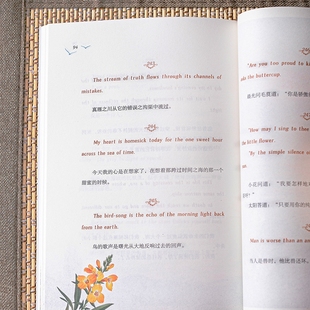 94
243
The stream of truth flows through its channels of
mistakes.
真理之川从它的错误之沟渠中流过。
244
My heart is homesick today for the one sweet hour
across the sea of time.
今天我的心是在想家了，在想着那跨过时间之海的那一个
甜蜜的时候。
245
The bird-song is the echo of the morning light back
from the earth.
鸟的歌声是曙光从大地反响过去的回声。
"Are you too proud to ki
the buttercup.
晨光问毛茛道："你是骄傲
"How may I sing to thee
le flower.
"By the simple silence o
小花问道："我要怎样地
太阳答道："只要用你的纯
Man is worse than an an
当人是兽时，他比兽还坏。